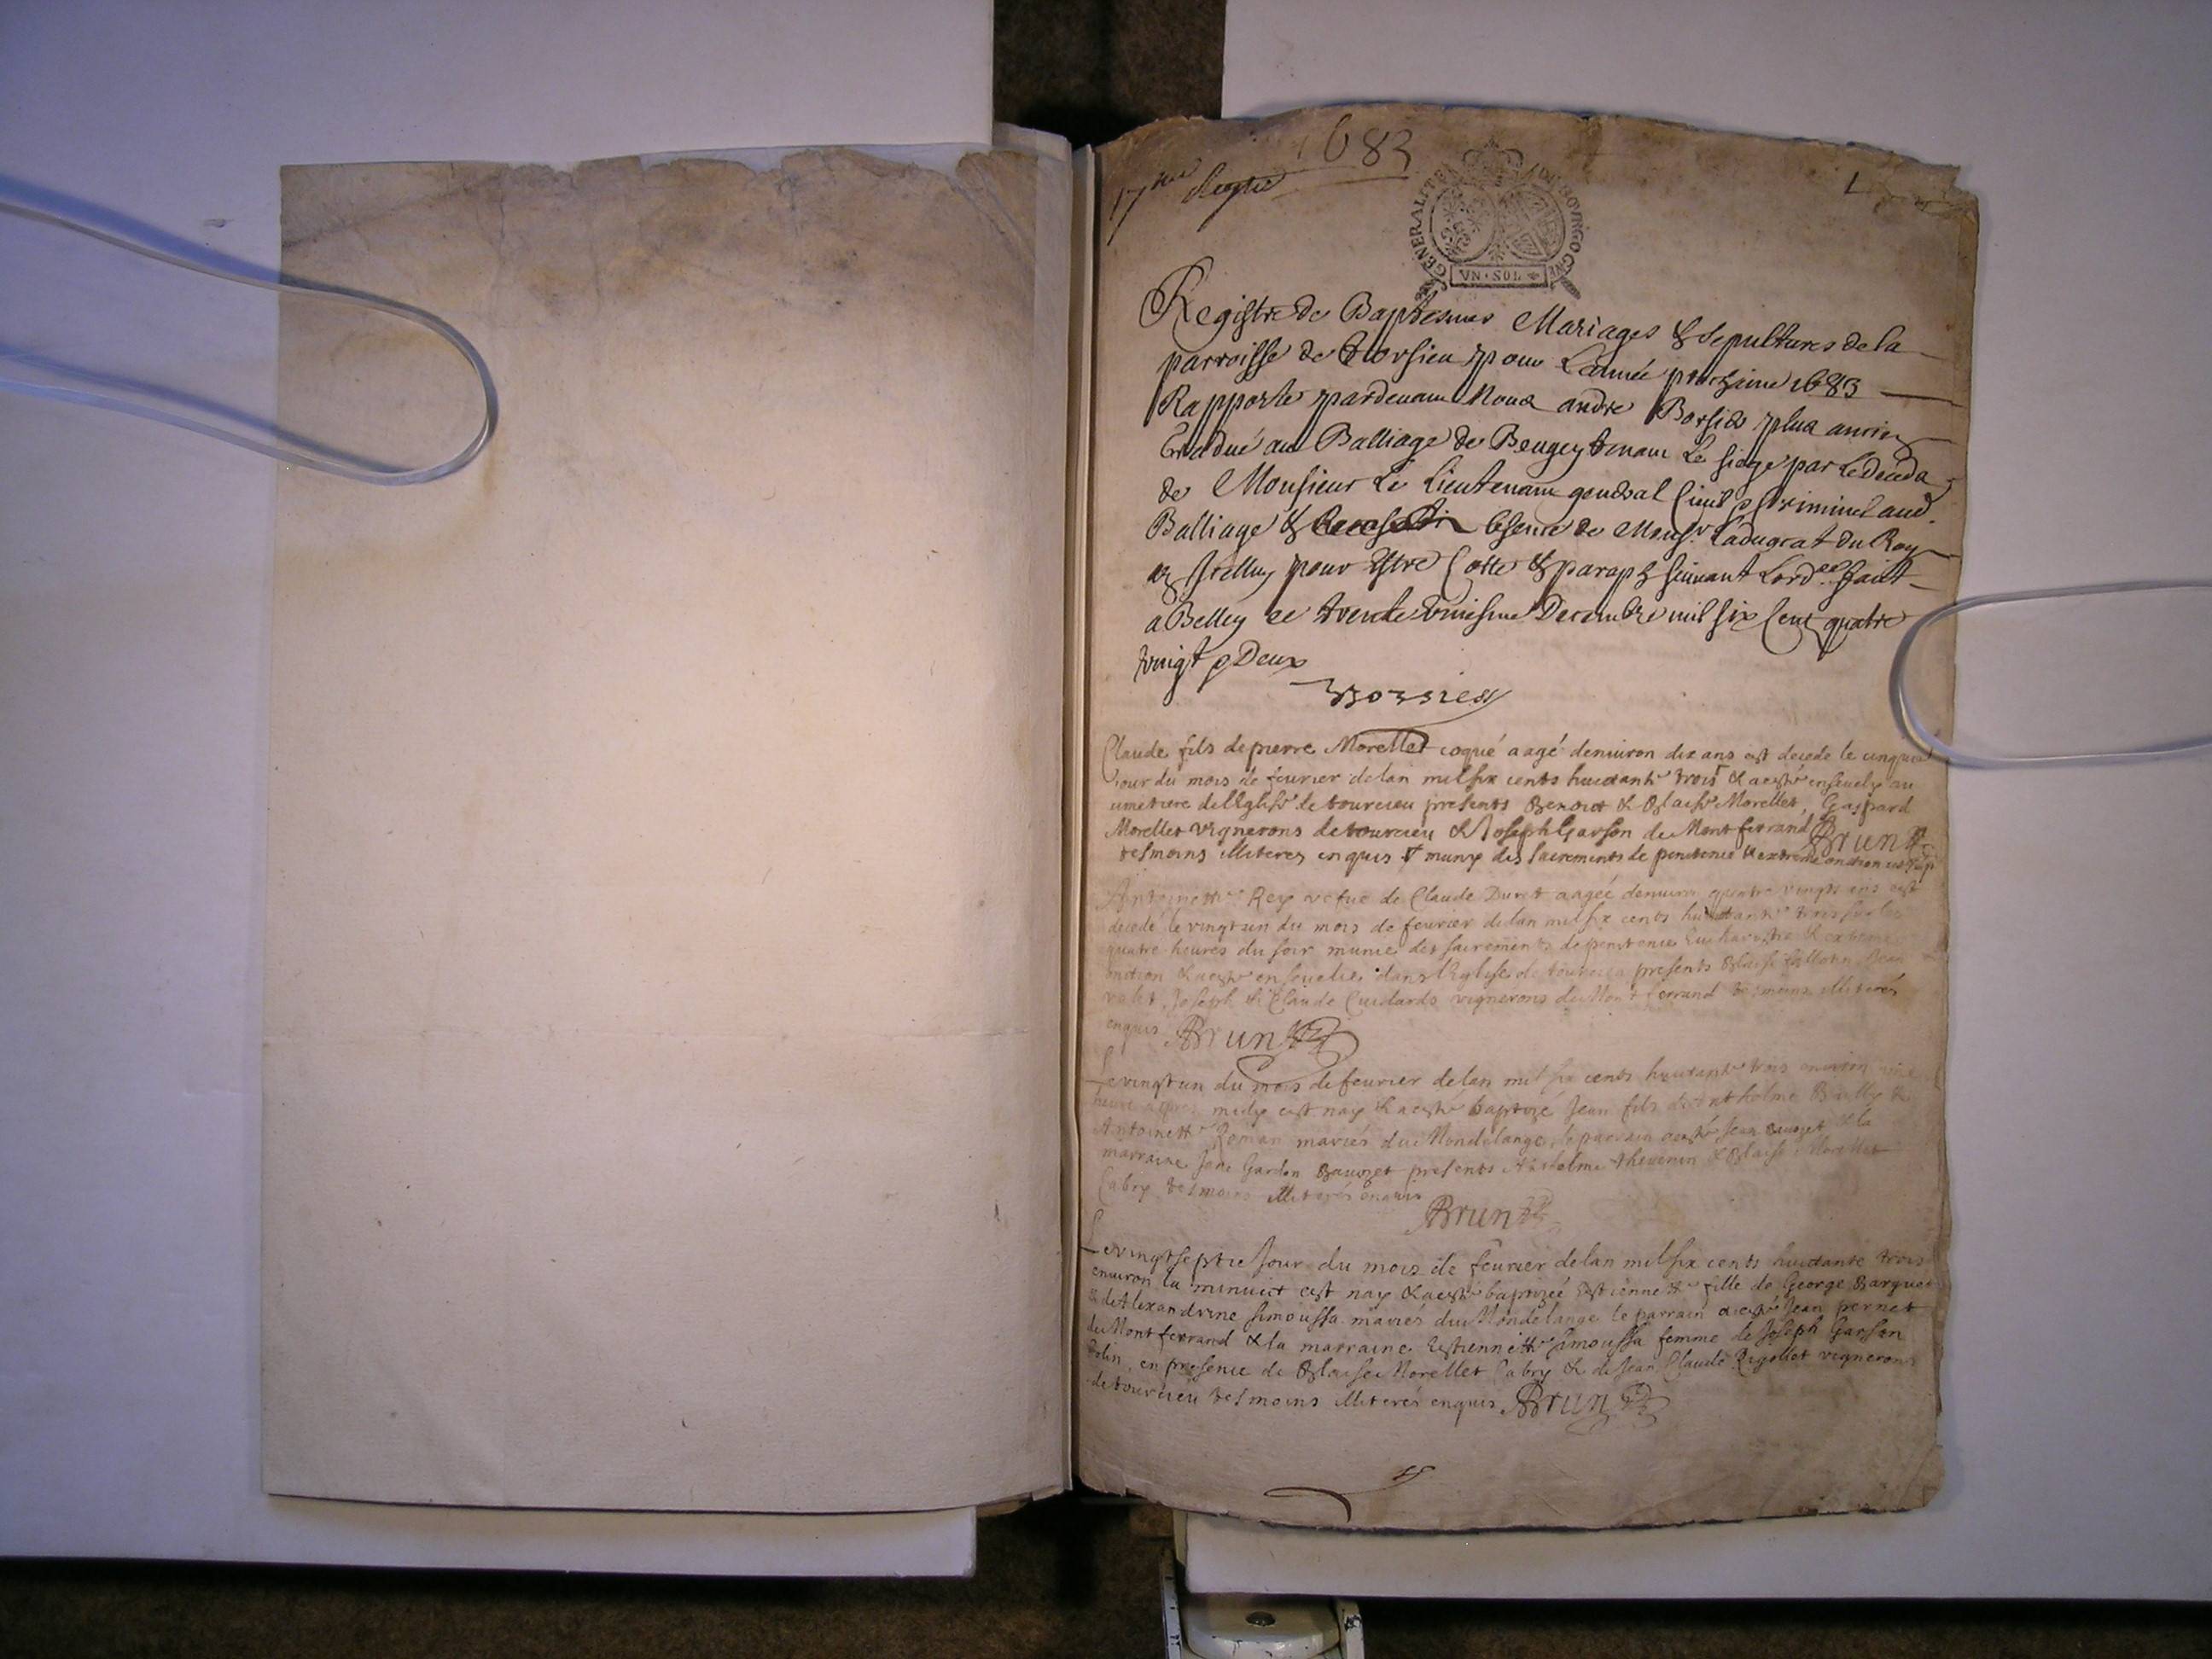 1683
17me
1
GENERALITE DE BOVRGOGNE
VN·SOL
Registre de Baptesmes Mariages & sepultures de la
parroisse de pour L'année prochaine 1683
Rapporte pardevant Nous andre Borsies plus ancien
Gradué au Balliage de Beugey tenant Le siege par Le deceda
de Monsieur Le Lieutenant general Civil & Criminel aud.
Balliage & absence de Monsr Ladvocat du Roy
en Icelluy pour Estre Cotte & paraphé suivant Lordce faict
a Belley ce trente uniesme Decembre mil six Cent quatre
vingt & Deux
Borsies
Claude fils de pierre Morellet coqué aagé denuiron dix ans est decede le cinquie
Jour du mois de feurier delan mil six cents huictante trois & aesté enseuely au
cimetiere de lEglise de tourcieu presents Benoict & Blaise Morellet, Gaspard
Morellet vignerons de tourcieu & Joseph Garson de Montferrand Brun
tesmoins illiteres enquis & muny des sacrements de penitence & extreme onction
Antoinette Rey vefue de Claude Duret aagée denuiron quatre vingts ans est
decedé le vingt un du mois de feurier delan mil six cents huictante trois sur les
quatre heures du soir munie des sacrements de penitence Eucharistie & extreme
onction & aesté enseuelie dans lEglise de tourcieu presents Blaise Jean
Joseph & Claude Cuidards vignerons du Montferrand tesmoins illiterés
enquis Brun
Le vingt un du mois de feurier delan mil six cents huictante trois enuiron une
heure apres midy est nay & aesté baptizé Jean fils danthelme Bailly &
Antoinette Roman mariés du Mondelange, le parrain aesté Jean Bauozet & la
marraine Jane Gardon Bauozet presents Anthelme thevenin & Blaise Morellet
Cabry tesmoins illiterés enquis
Brun
Le vingt septie Jour du mois de feurier delan mil six cents huictante trois
enuiron la minuict est nay & aesté baptizée Estiennette fille de George Barquet
& de Alexandrine simoussa mariés du Mondelange le parrain aesté Jean pernet
du Montferrand & la marraine Estiennette simoussa femme de Joseph Garson
Colin, en presence de Blaise Morellet Cabry & de Jean Claude Rigollet vignerons
de tourcieu tesmoins illiterés enquis Brun